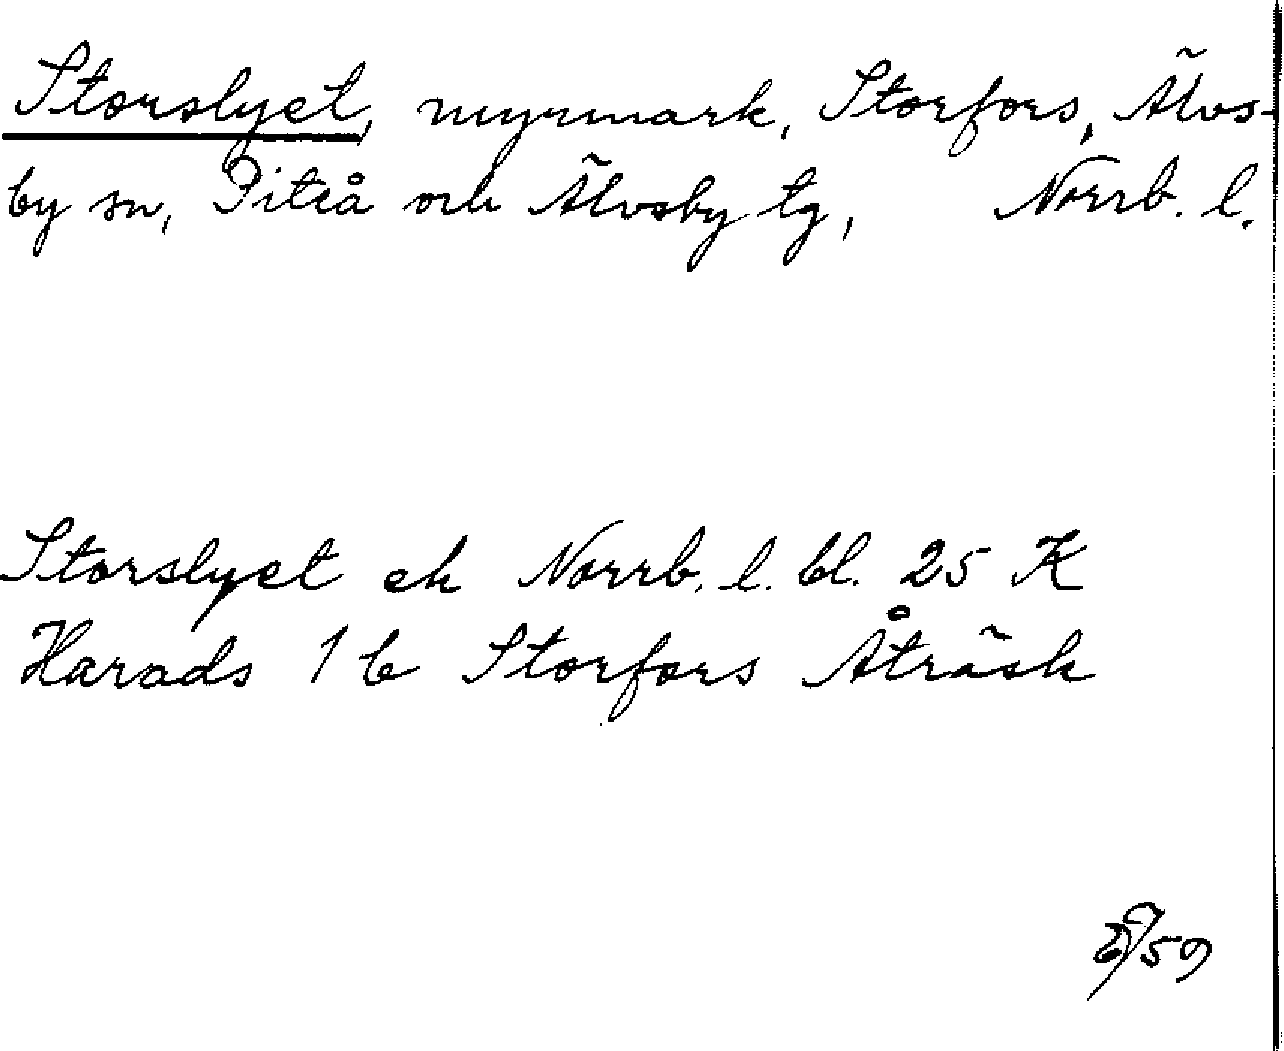 Storslyet, myrmark, Storfors, Älvs-
by sn, Piteå och Älvsby tg, Norrb. l.
Storslyet ek Norrb. l. bl. 25 K
Harads 1 b Storfors Åträsk